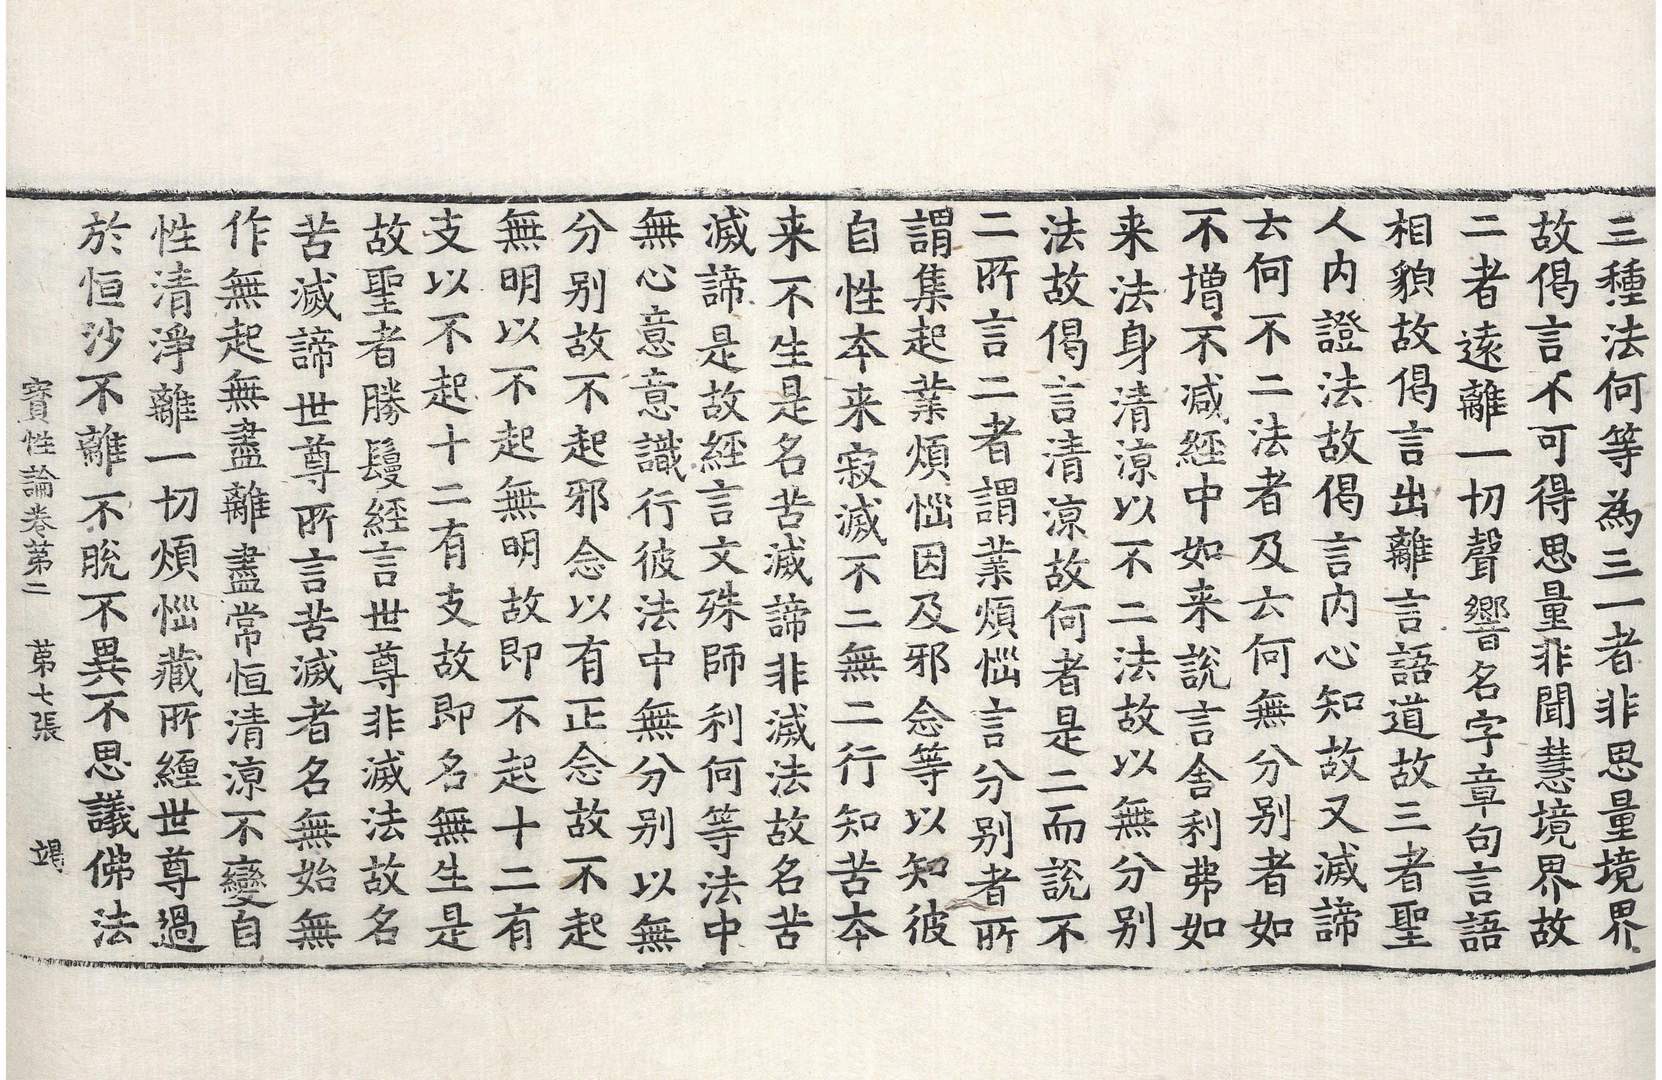 三種法何等為三一者非思量境界
故偈言不可得思量非聞慧境界故
二者遠離一切聲響名字章句言語
相貌故偈言出離言語道故三者聖
人内證法故偈言内心知故又滅諦
云何不二法者及云何無分別者如
不増不減經中如来說言舎利弗如
来法身清涼以不二法故以無分別
法故偈言清涼故何者是二而說不
二所言二者謂業煩惱言分別者所
謂集起業煩惱因及邪念等以知彼
自性本来寂滅不二無二行知苦本
来不生是名苦滅諦非滅法故名苦
滅諦是故經言文殊師利何等法中
無心意意識行彼法中無分別以無
分別故不起邪念以有正念故不起
無明以不起無明故即不起十二有
支以不起十二有支故即名無生是
故聖者勝鬘經言世尊非滅法故名
苦滅諦世尊所言苦滅者名無始無
作無起無盡離盡常恒清涼不變自
性清淨離一切煩惱藏所纏世尊過
於恒沙不離不脫不異不思議佛法
寳性論卷苐二　苐七張　竭